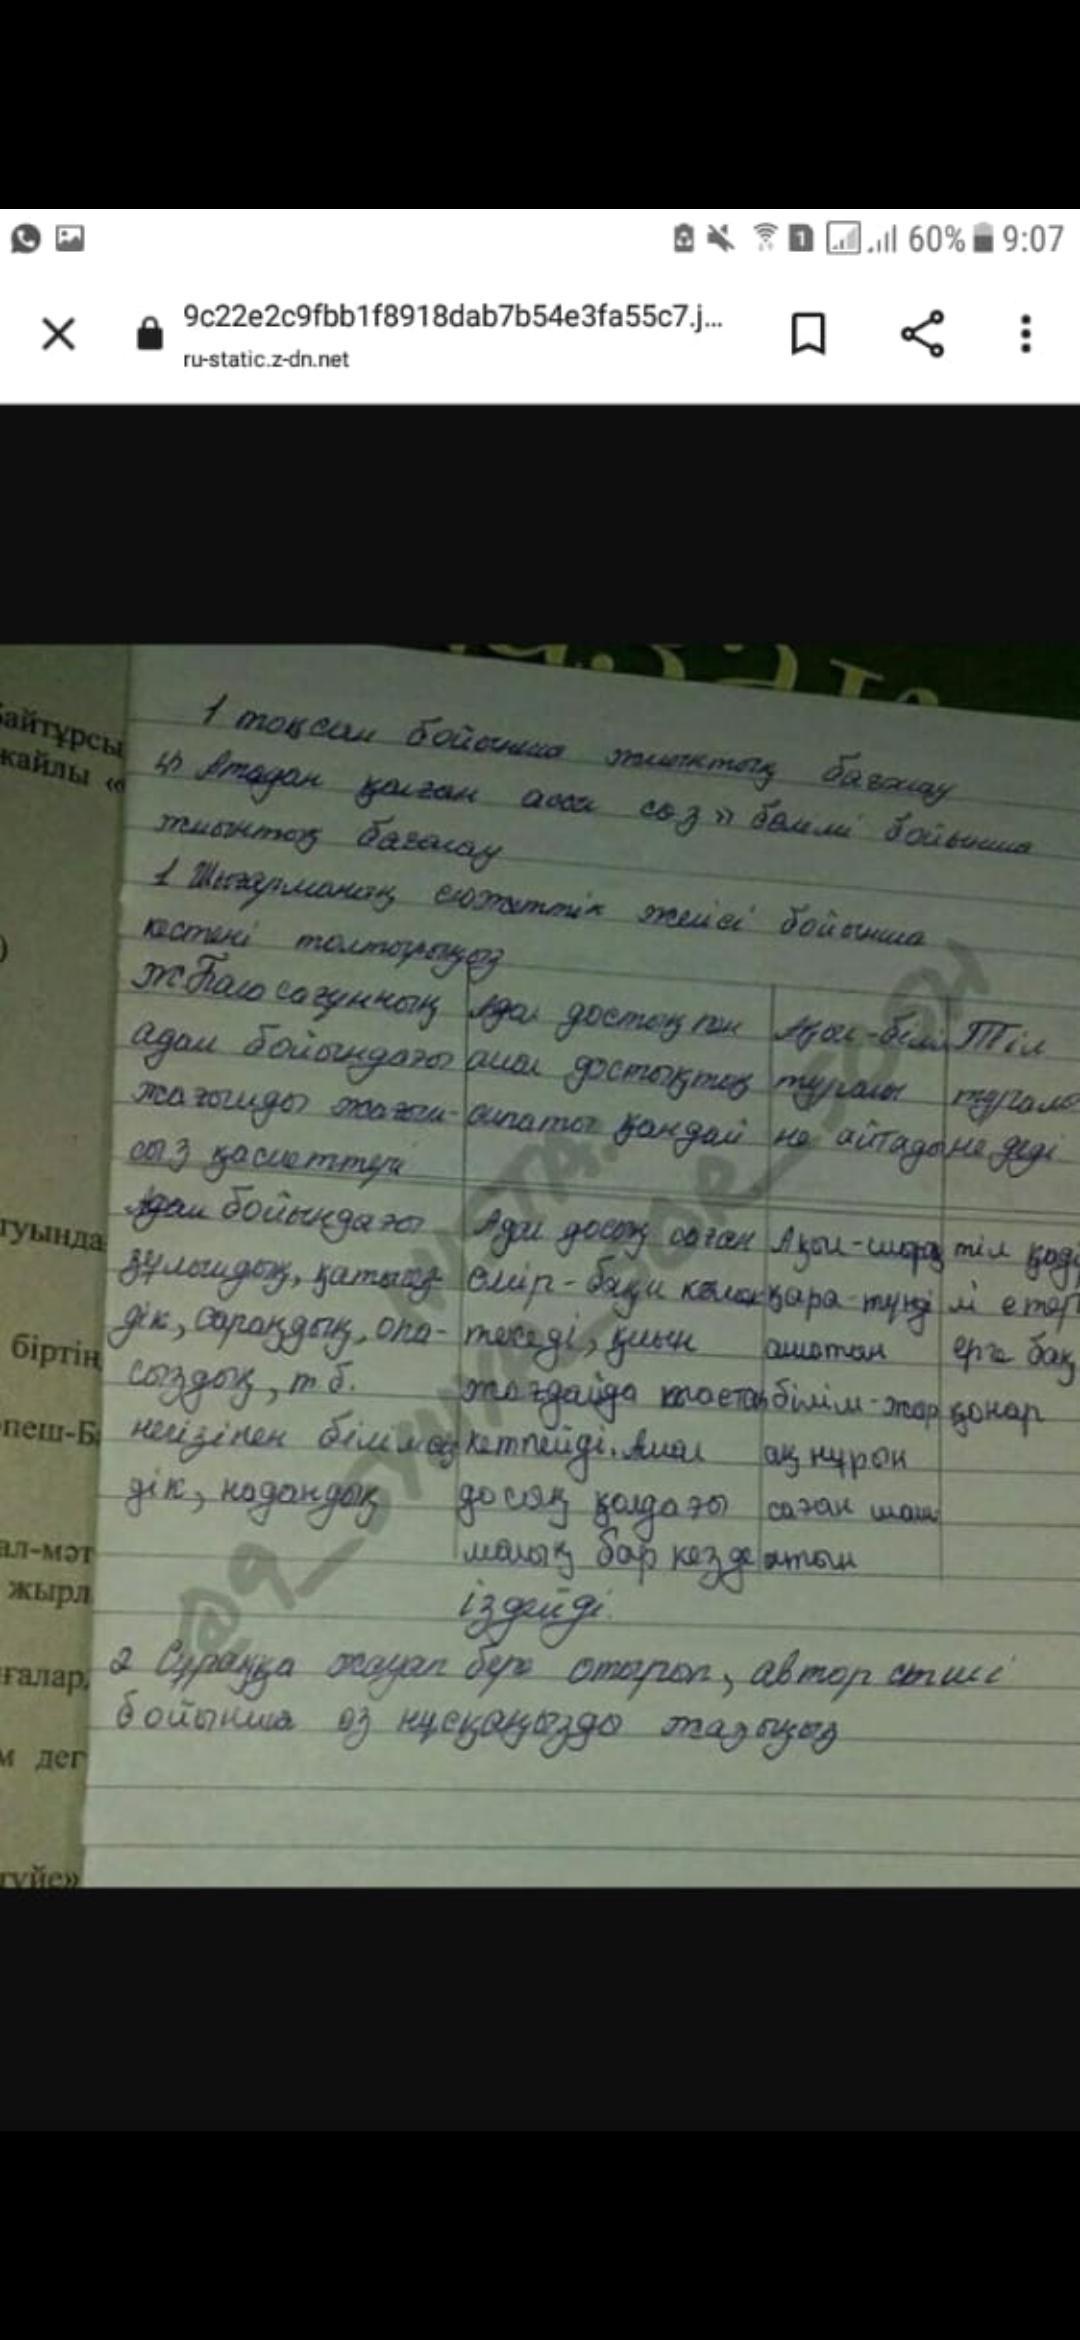 60% 9:07
9c22e2c9fbb1f8918dab7b54e3fa55c7.j...
ru-static.z-dn.net
айтұрсы
жайлы «
1 тоқсан бойынша жиынтық бағалау
«Атадан қалған асыл сөз» бөлімі бойынша
жиынтық бағалау
1 Шығарманың сюжеттік желісі бойынша
кестені толтырыңыз
Ж. Баласағұнның адам бойындағы жағымды жағымсыз қасиеттері
Адал достық пен амал достықтың сипаты қандай
Ақыл-білім туралы не айтады
Тіл туралы не деді
Адам бойындағы
зұлымдық, қатыгез-
дік, сараңдық, опа-
сыздық, т.б.
негізінен білімсіз-
дік, надандық
Адал досың саған
өмір-бақи көмек
теседі, қиын
жағдайда тастап
кетпейді. Амал
досың қолдағы
малың бар кезде
іздейді.
Ақыл-шырақ
қара-түнді
ашатын
білім-жар
ақ нұрын
саған шаш
атын
тіл қәді
лі етер
ерге бақ
қонар
2 Сұраққа жауап бере отырып, автор стилі
бойынша өз нұсқаңызда жазыңыз
туында
біртін
пеш-Б
ал-мәт
жырл
ғалар,
м дег
түйе»
@9_SYNYP_JOR_SOH